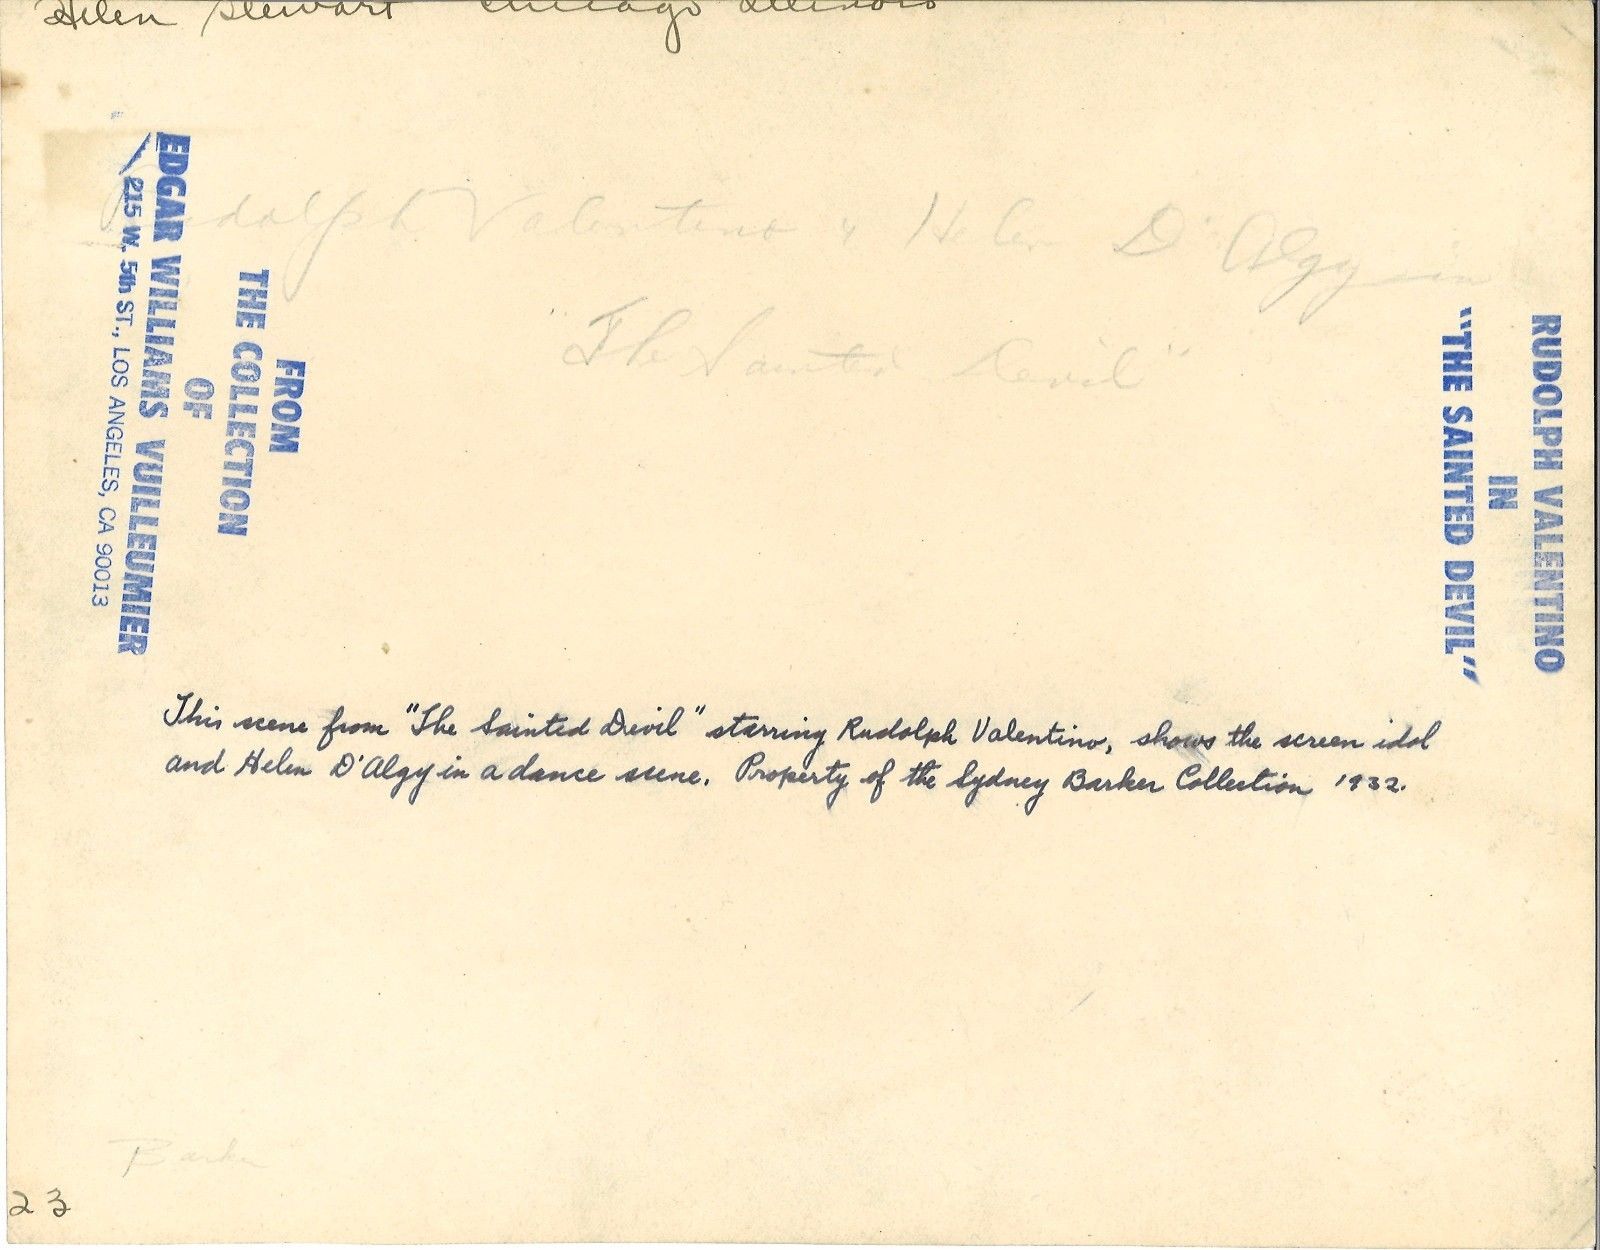 Helen Stewart Chicago Illinois
Rudolph Valentino & Helen D'Algy in
"The Sainted Devil"
FROM
THE COLLECTION
OF
EDGAR WILLIAMS VUILLEUMIER
215 W. 5th ST., LOS ANGELES, CA 90013
RUDOLPH VALENTINO
IN
"THE SAINTED DEVIL"
This scene from "The Sainted Devil" starring Rudolph Valentino, shows the screen idol
and Helen D'Algy in a dance scene. Property of the Sydney Barker Collection 1932.
Barker
23